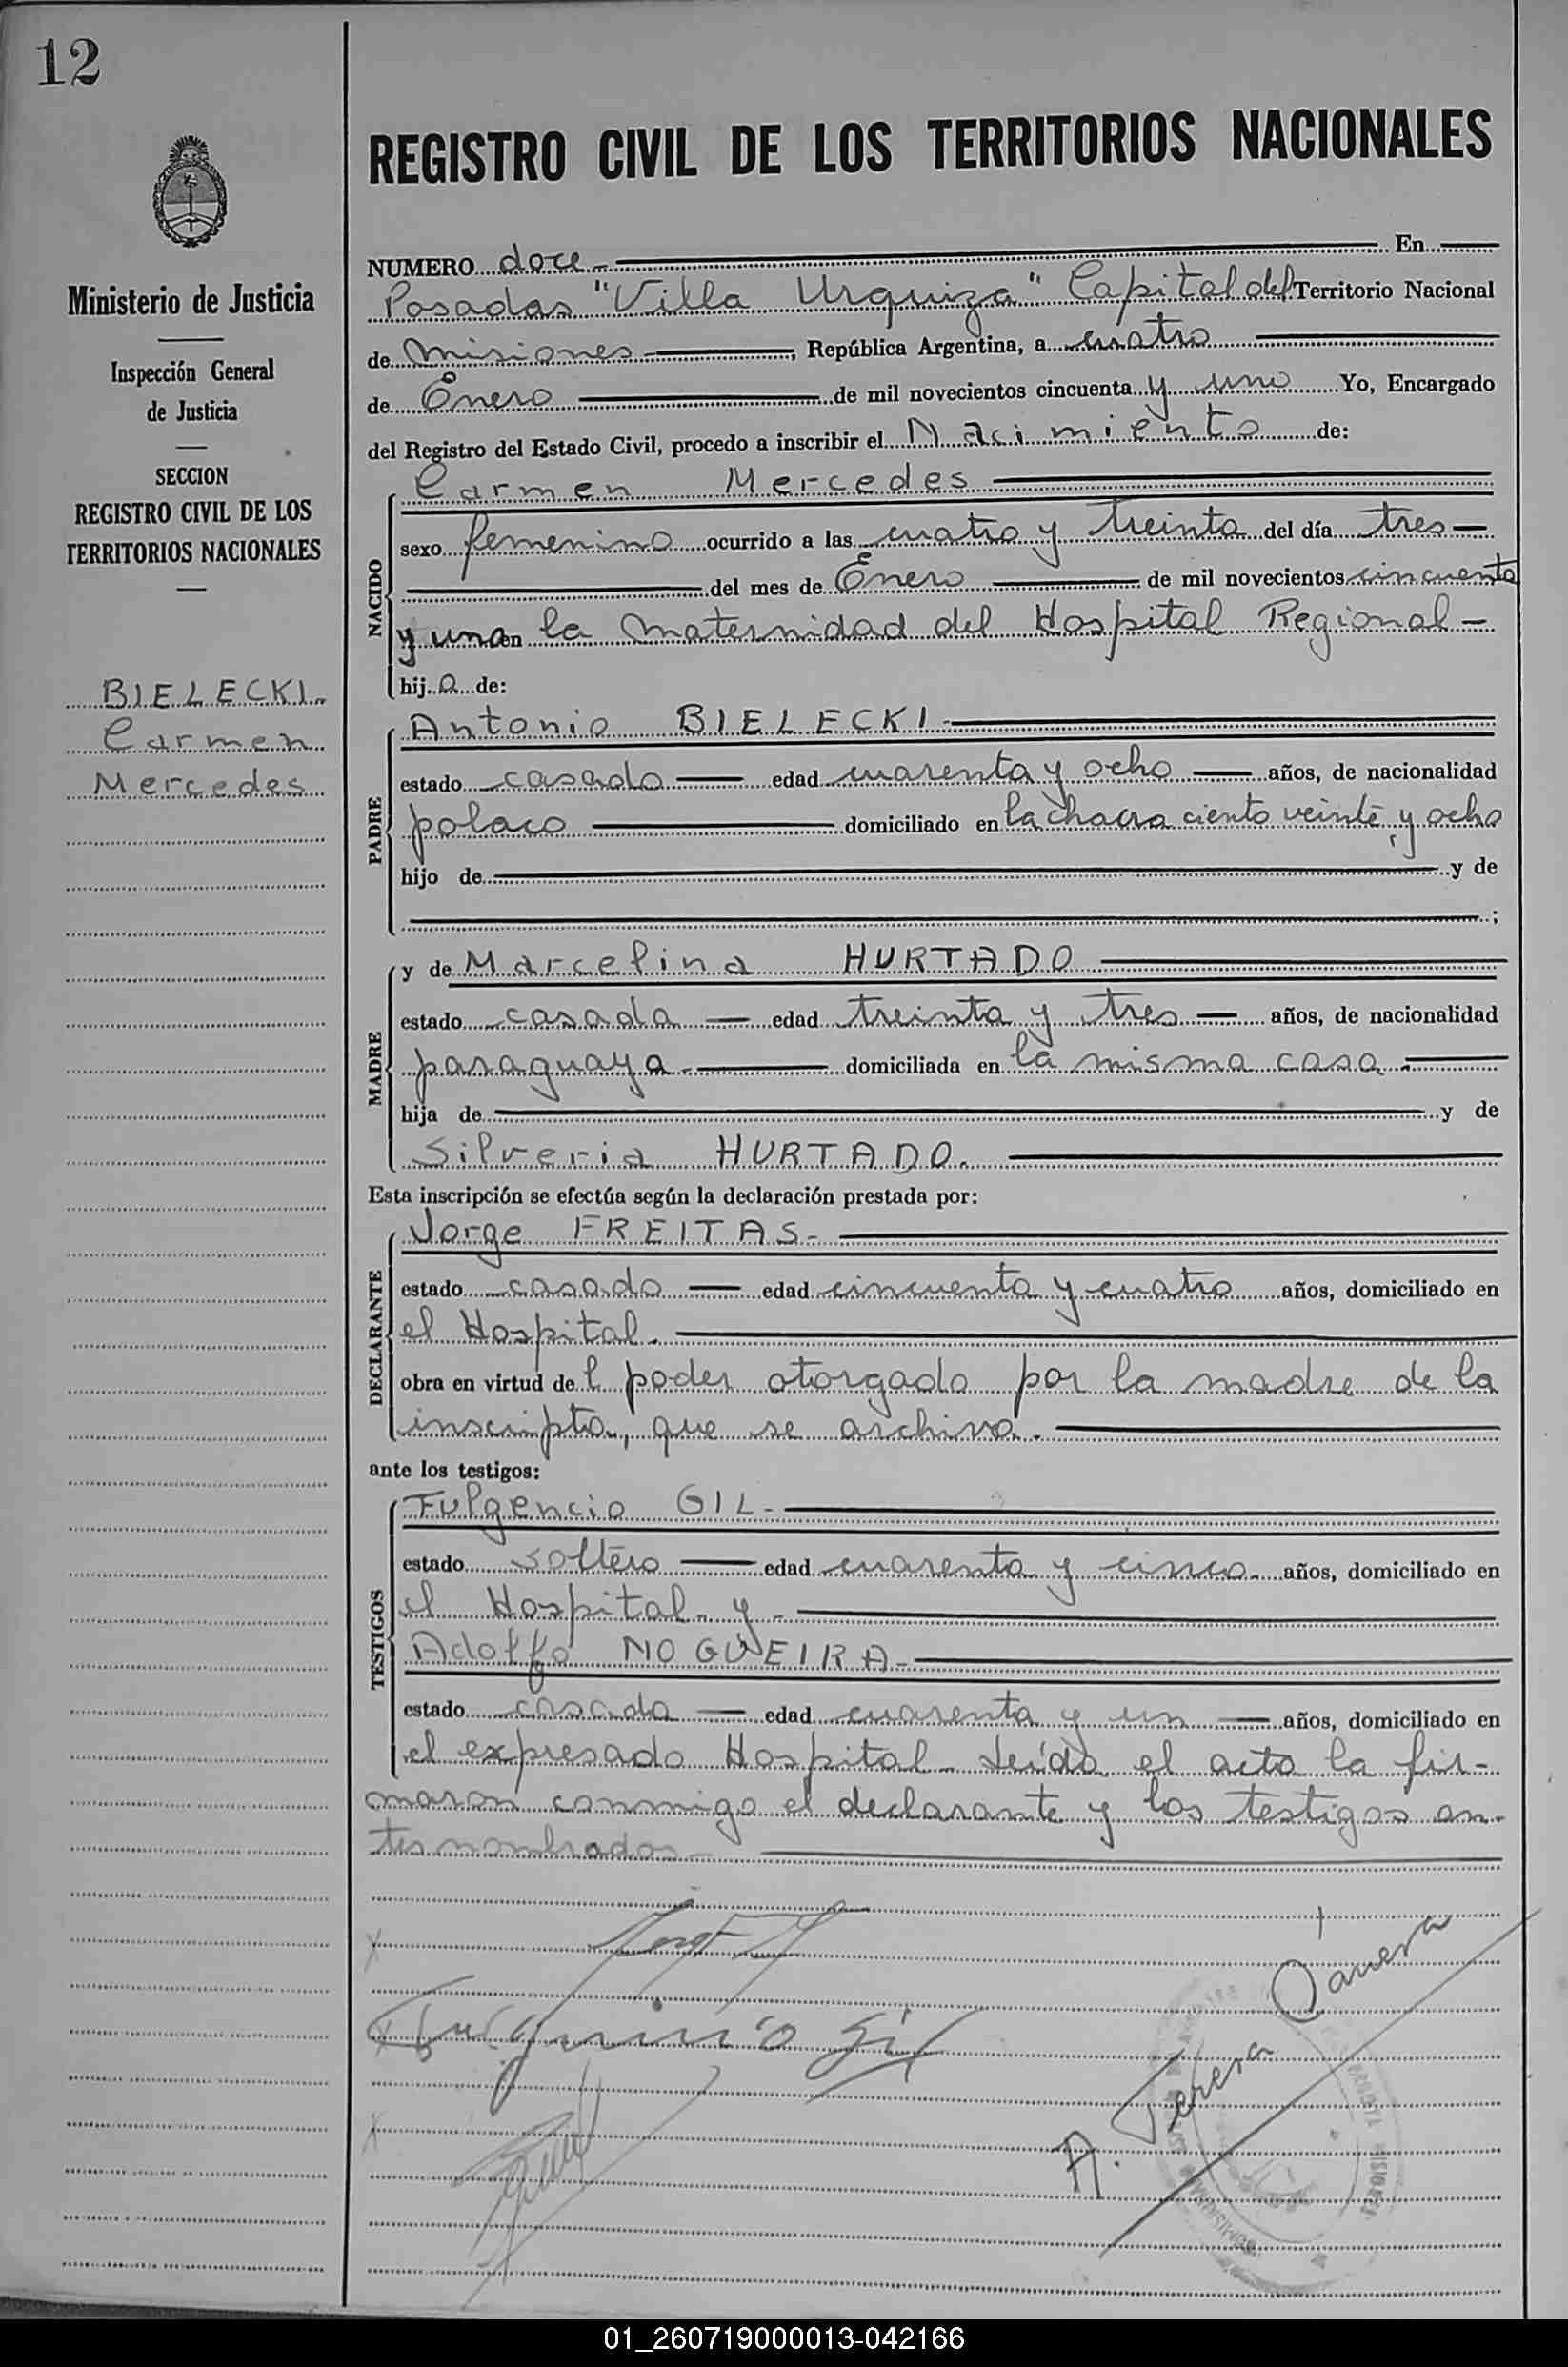 12
Ministerio de Justicia
Inspección General
de Justicia
SECCION
REGISTRO CIVIL DE LOS
TERRITORIOS NACIONALES
BIELECKI.-
Carmen
Mercedes
REGISTRO CIVIL DE LOS TERRITORIOS NACIONALES
NUMERO doce.- En
Posadas "Villa Urquiza" Capital del Territorio Nacional
de Misiones, República Argentina, a cuatro
de Enero de mil novecientos cincuenta y uno Yo, Encargado
del Registro del Estado Civil, procedo a inscribir el Nacimiento de:
NACIDO
Carmen Mercedes
sexo femenino ocurrido a las cuatro y treinta del día tres
del mes de Enero de mil novecientos cincuenta
y uno en la Maternidad del Hospital Regional
hija de:
PADRE
Antonio BIELECKI.-
estado casado edad cuarenta y ocho años, de nacionalidad
polaco domiciliado en la chacra ciento veinte y ocho
hijo de y de
;
MADRE
y de Marcelina HURTADO
estado casada edad treinta y tres años, de nacionalidad
paraguaya.- domiciliada en la misma casa.-
hija de y de
Silveria HURTADO.
Esta inscripción se efectúa según la declaración prestada por:
DECLARANTE
Jorge FREITAS.-
estado casado edad cincuenta y cuatro años, domiciliado en
el Hospital.
obra en virtud del poder otorgado por la madre de la
inscripta, que se archiva.
ante los testigos:
TESTIGOS
Fulgencio GIL.-
estado soltero edad cuarenta y cinco años, domiciliado en
el Hospital y.-
Adolfo NOGUEIRA.-
estado casado edad cuarenta y un años, domiciliado en
el expresado Hospital. Leída el acta la fir-
maron conmigo el declarante y los testigos an-
tes nombrados.-
Fulgencio Gil
A. Teresa
01_260719000013-042166